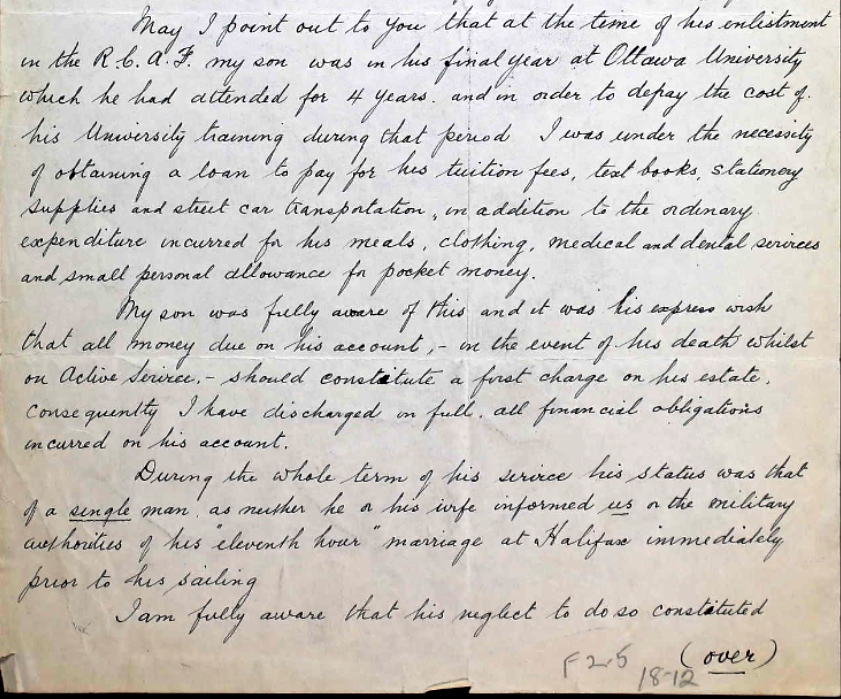 May I point out to you that at the time of his enlistment
in the R.C.A.F. my son was in his final year at Ottawa University
which he had attended for 4 years. and in order to defray the cost of
his University training during that period I was under the necessity
of obtaining a loan to pay for his tuition fees, text books, stationery
supplies and street car transportation, in addition to the ordinary
expenditure incurred for his meals, clothing, medical and dental services
and small personal allowance for pocket money.
My son was fully aware of this and it was his express wish
that all money due on his account, - in the event of his death whilst
on Active Service, - should constitute a first charge on his estate.
Consequently I have discharged in full. all financial obligations
incurred on his account.
During the whole term of his service his status was that
of a single man, as neither he or his wife informed us or the military
authorities of his "eleventh hour" marriage at Halifax immediately
prior to his sailing
I am fully aware that his neglect to do so constituted
(over)
F 25
18-12